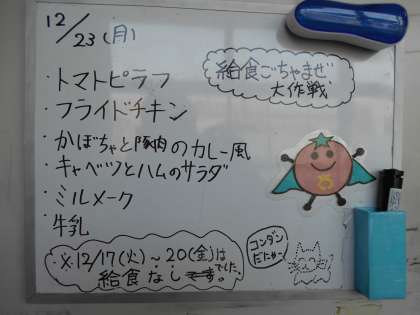 12/23(月)
給食ごちゃまぜ
大作戦
・トマトピラフ
・フライドチキン
・かぼちゃと豚肉のカレー風
・キャベツとハムのサラダ
・ミルメーク
・牛乳
※12/17(火)～20(金)は
給食なしでした。
コンダン
だにゃー